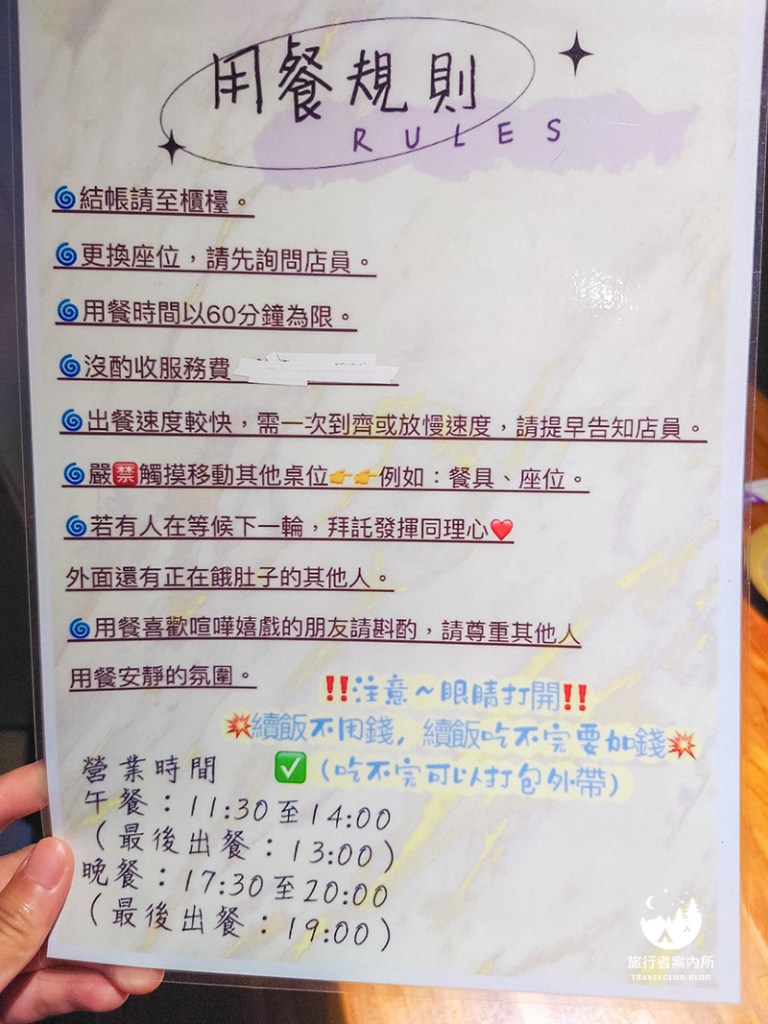 用餐規則
RULES
🌀結帳請至櫃檯。
🌀更換座位，請先詢問店員。
🌀用餐時間以60分鐘為限。
🌀沒酌收服務費
🌀出餐速度較快，需一次到齊或放慢速度，請提早告知店員。
🌀嚴🈲觸摸移動其他桌位👉👉例如：餐具、座位。
🌀若有人在等候下一輪，拜託發揮同理心❤️
外面還有正在餓肚子的其他人。
🌀用餐喜歡喧嘩嬉戲的朋友請斟酌，請尊重其他人
用餐安靜的氛圍。
‼️注意～眼睛打開‼️
💥續飯不用錢，續飯吃不完要加錢💥
✅（吃不完可以打包外帶）
營業時間
午餐：11:30至14:00
（最後出餐：13:00）
晚餐：17:30至20:00
（最後出餐：19:00）
旅行者案內所
TRAVELCLUB.BLOG